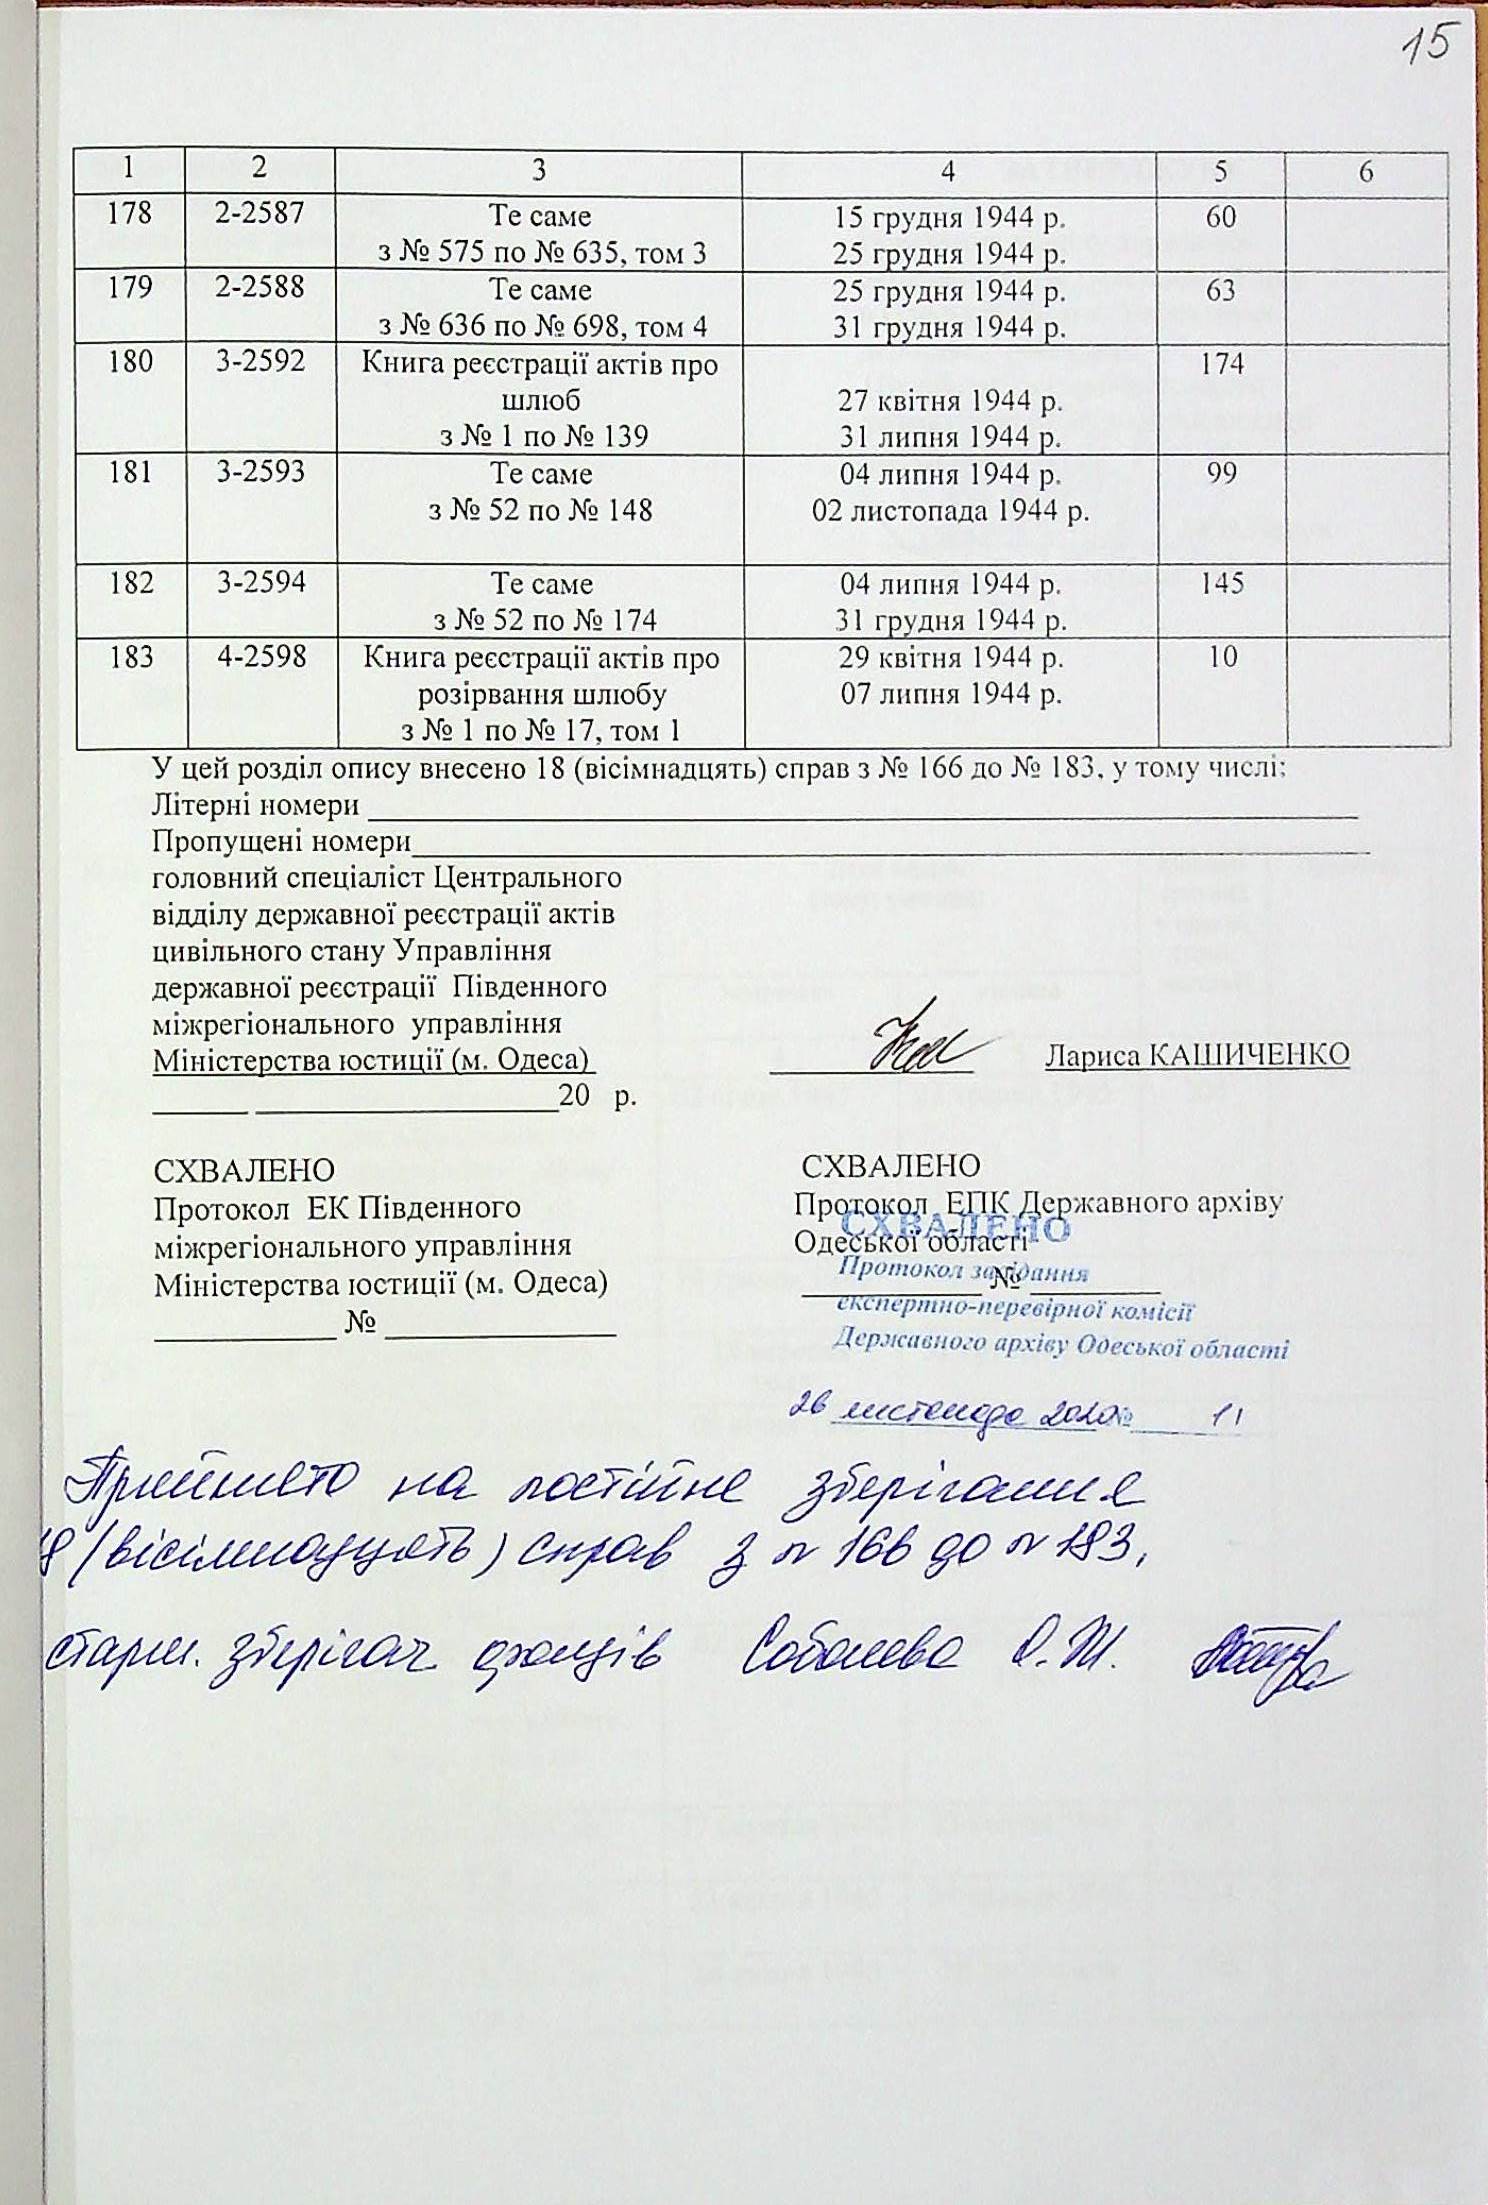 15
1 2 3 4 5 6
178 2-2587 Те саме 15 грудня 1944 р. 60
з № 575 по № 635, том 3 25 грудня 1944 р.
179 2-2588 Те саме 25 грудня 1944 р. 63
з № 636 по № 698, том 4 31 грудня 1944 р.
180 3-2592 Книга реєстрації актів про 174
шлюб 27 квітня 1944 р.
з № 1 по № 139 31 липня 1944 р.
181 3-2593 Те саме 04 липня 1944 р. 99
з № 52 по № 148 02 листопада 1944 р.
182 3-2594 Те саме 04 липня 1944 р. 145
з № 52 по № 174 31 грудня 1944 р.
183 4-2598 Книга реєстрації актів про 29 квітня 1944 р. 10
розірвання шлюбу 07 липня 1944 р.
з № 1 по № 17, том 1
У цей розділ опису внесено 18 (вісімнадцять) справ з № 166 до № 183, у тому числі;
Літерні номери
Пропущені номери
головний спеціаліст Центрального
відділу державної реєстрації актів
цивільного стану Управління
державної реєстрації Південного
міжрегіонального управління
Міністерства юстиції (м. Одеса) Лариса КАШИЧЕНКО
20 р.
СХВАЛЕНО
Протокол ЕК Південного
міжрегіонального управління
Міністерства юстиції (м. Одеса)
№
СХВАЛЕНО
Протокол ЕПК Державного архіву
Одеської області
№
СХВАЛЕНО
Протокол засідання
експертно-перевірної комісії
Державного архіву Одеської області
26 листопада 2020 № 11
Прийнято на постійне зберігання
18 (вісімнадцять) справ з № 166 до № 183.
старш. зберігач фондів Соболева О.